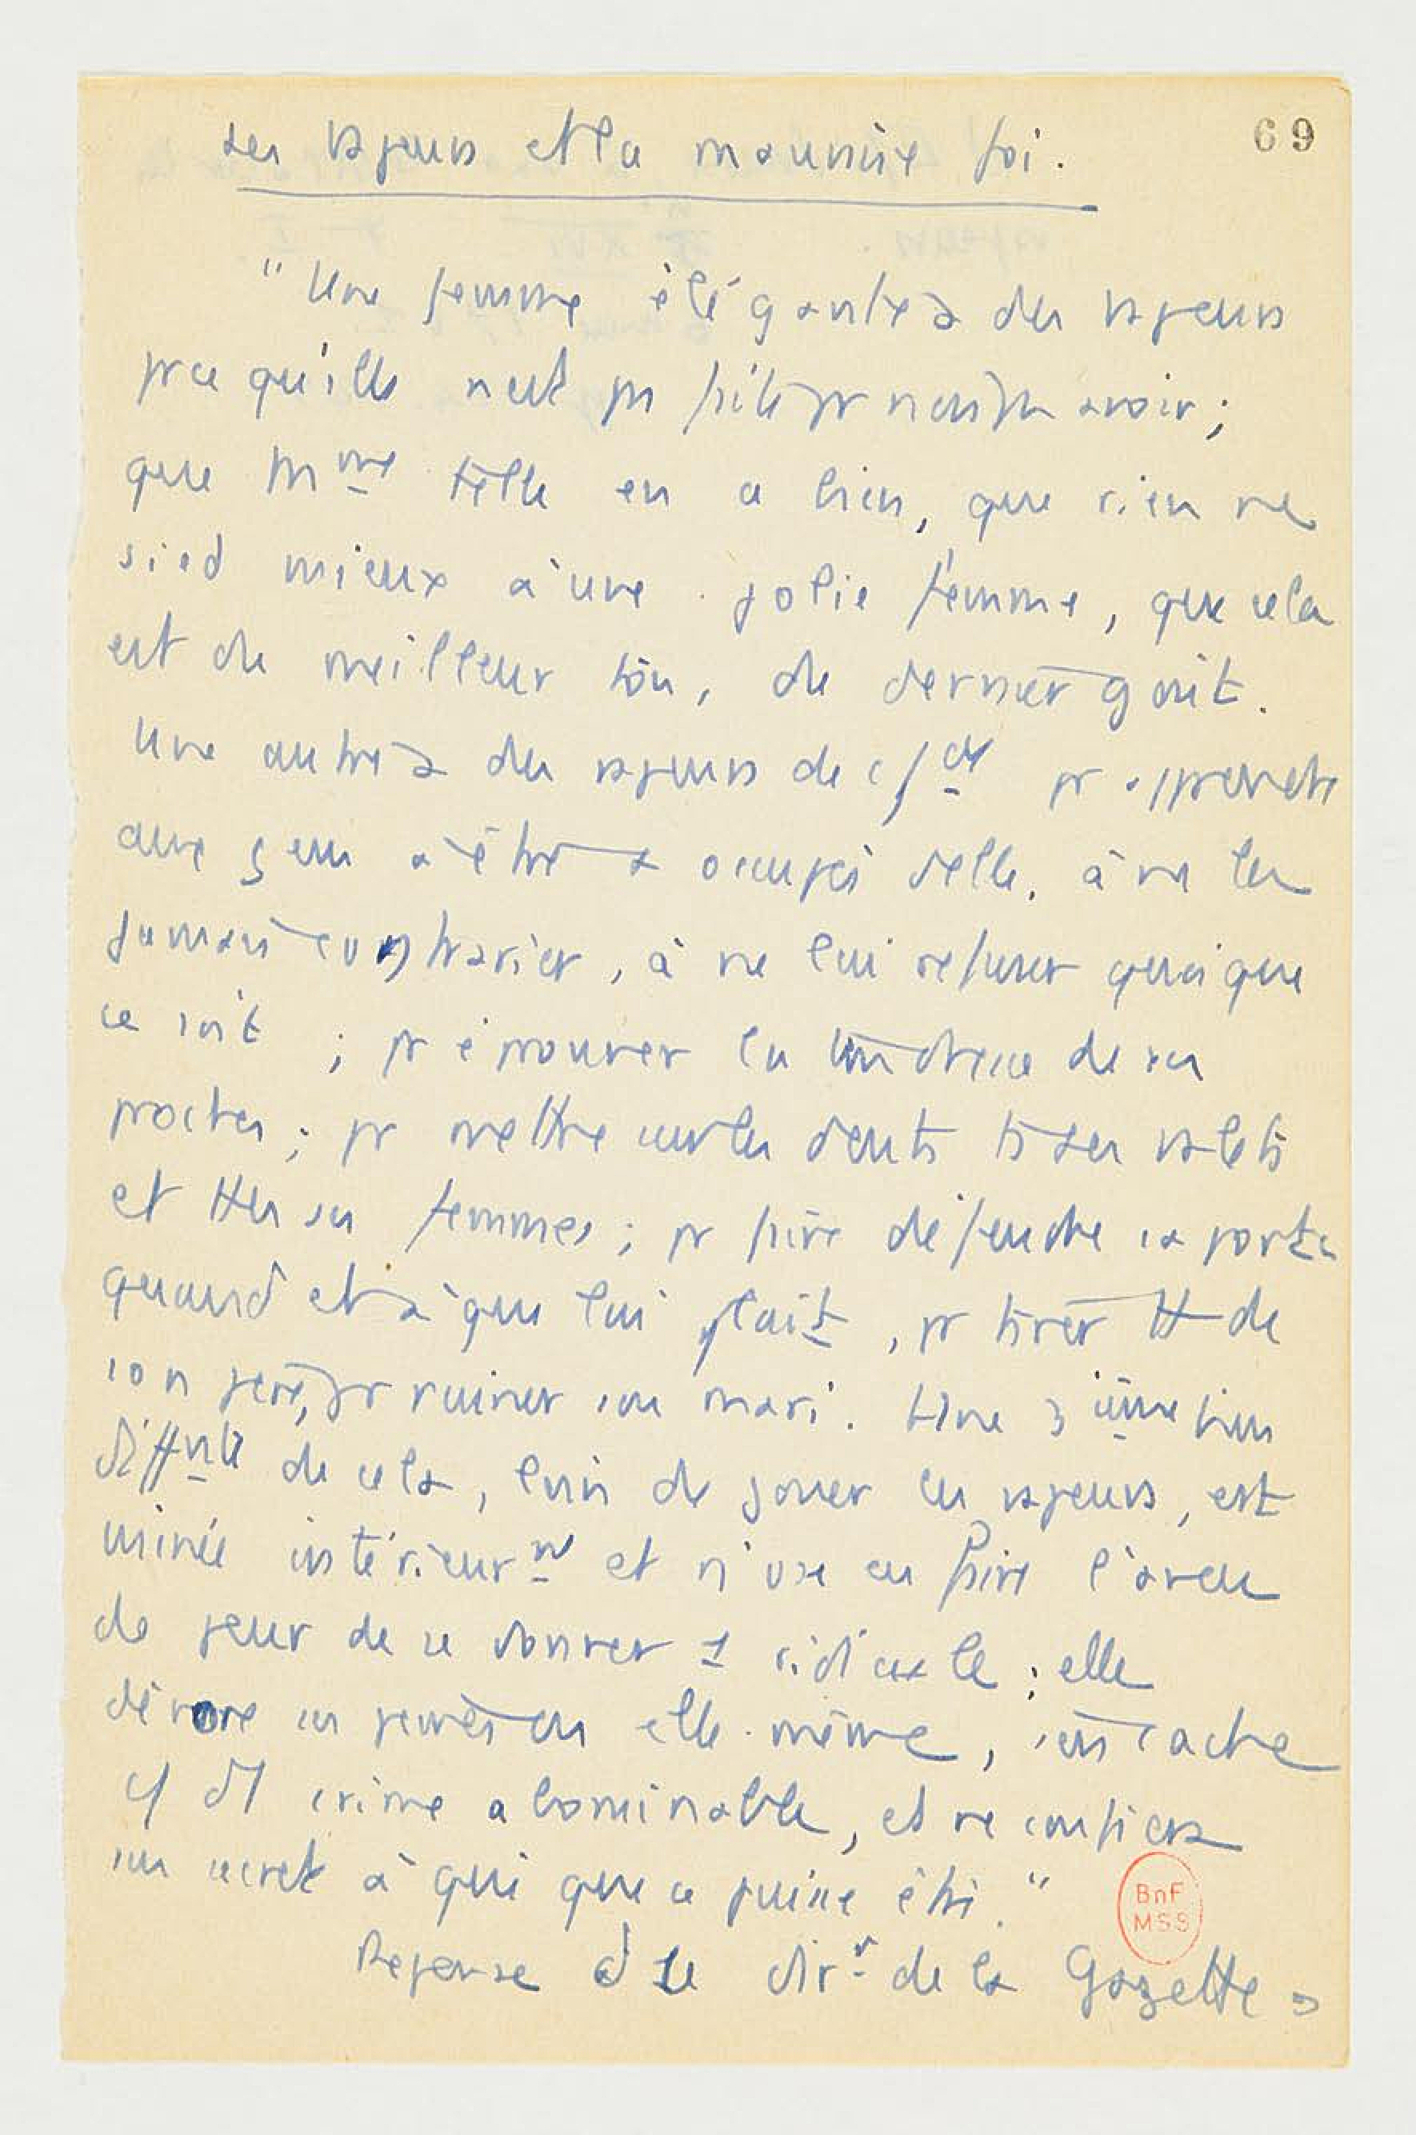 Les vapeurs et la mauvaise foi.
69
"Une femme élégante a des vapeurs
pce qu'elle n'est pas faite pr n'en pas avoir ;
que Mme telle en a bien, que rien ne
sied mieux à une jolie femme, que cela
est du meilleur ton, du dernier goût.
Une autre a des vapeurs de cde pr apprendre
aux gens à être occupés d'elle, à ne la
jamais contrarier, à ne lui refuser quoi que
ce soit ; pr éprouver la tendresse de ses
proches ; pr mettre sur les dents ts ses valets
et ttes ses femmes ; pr faire défendre sa porte
quand et à qui lui plait, pr tirer tt de
son père, pr ruiner son mari. Une 3ième bien
difftnte de cela, loin de jouer les vapeurs, est
minée intérieurnt et n'ose en faire l'aveu
de peur de se donner 1 ridicule ; elle
dévore ses peines en elle-même, s'en cache
cf d'1 crime abominable, et ne confiera
son secret à qui que ce puisse être."
Réponse d Le dirr de la Gazette
BnF
MSS